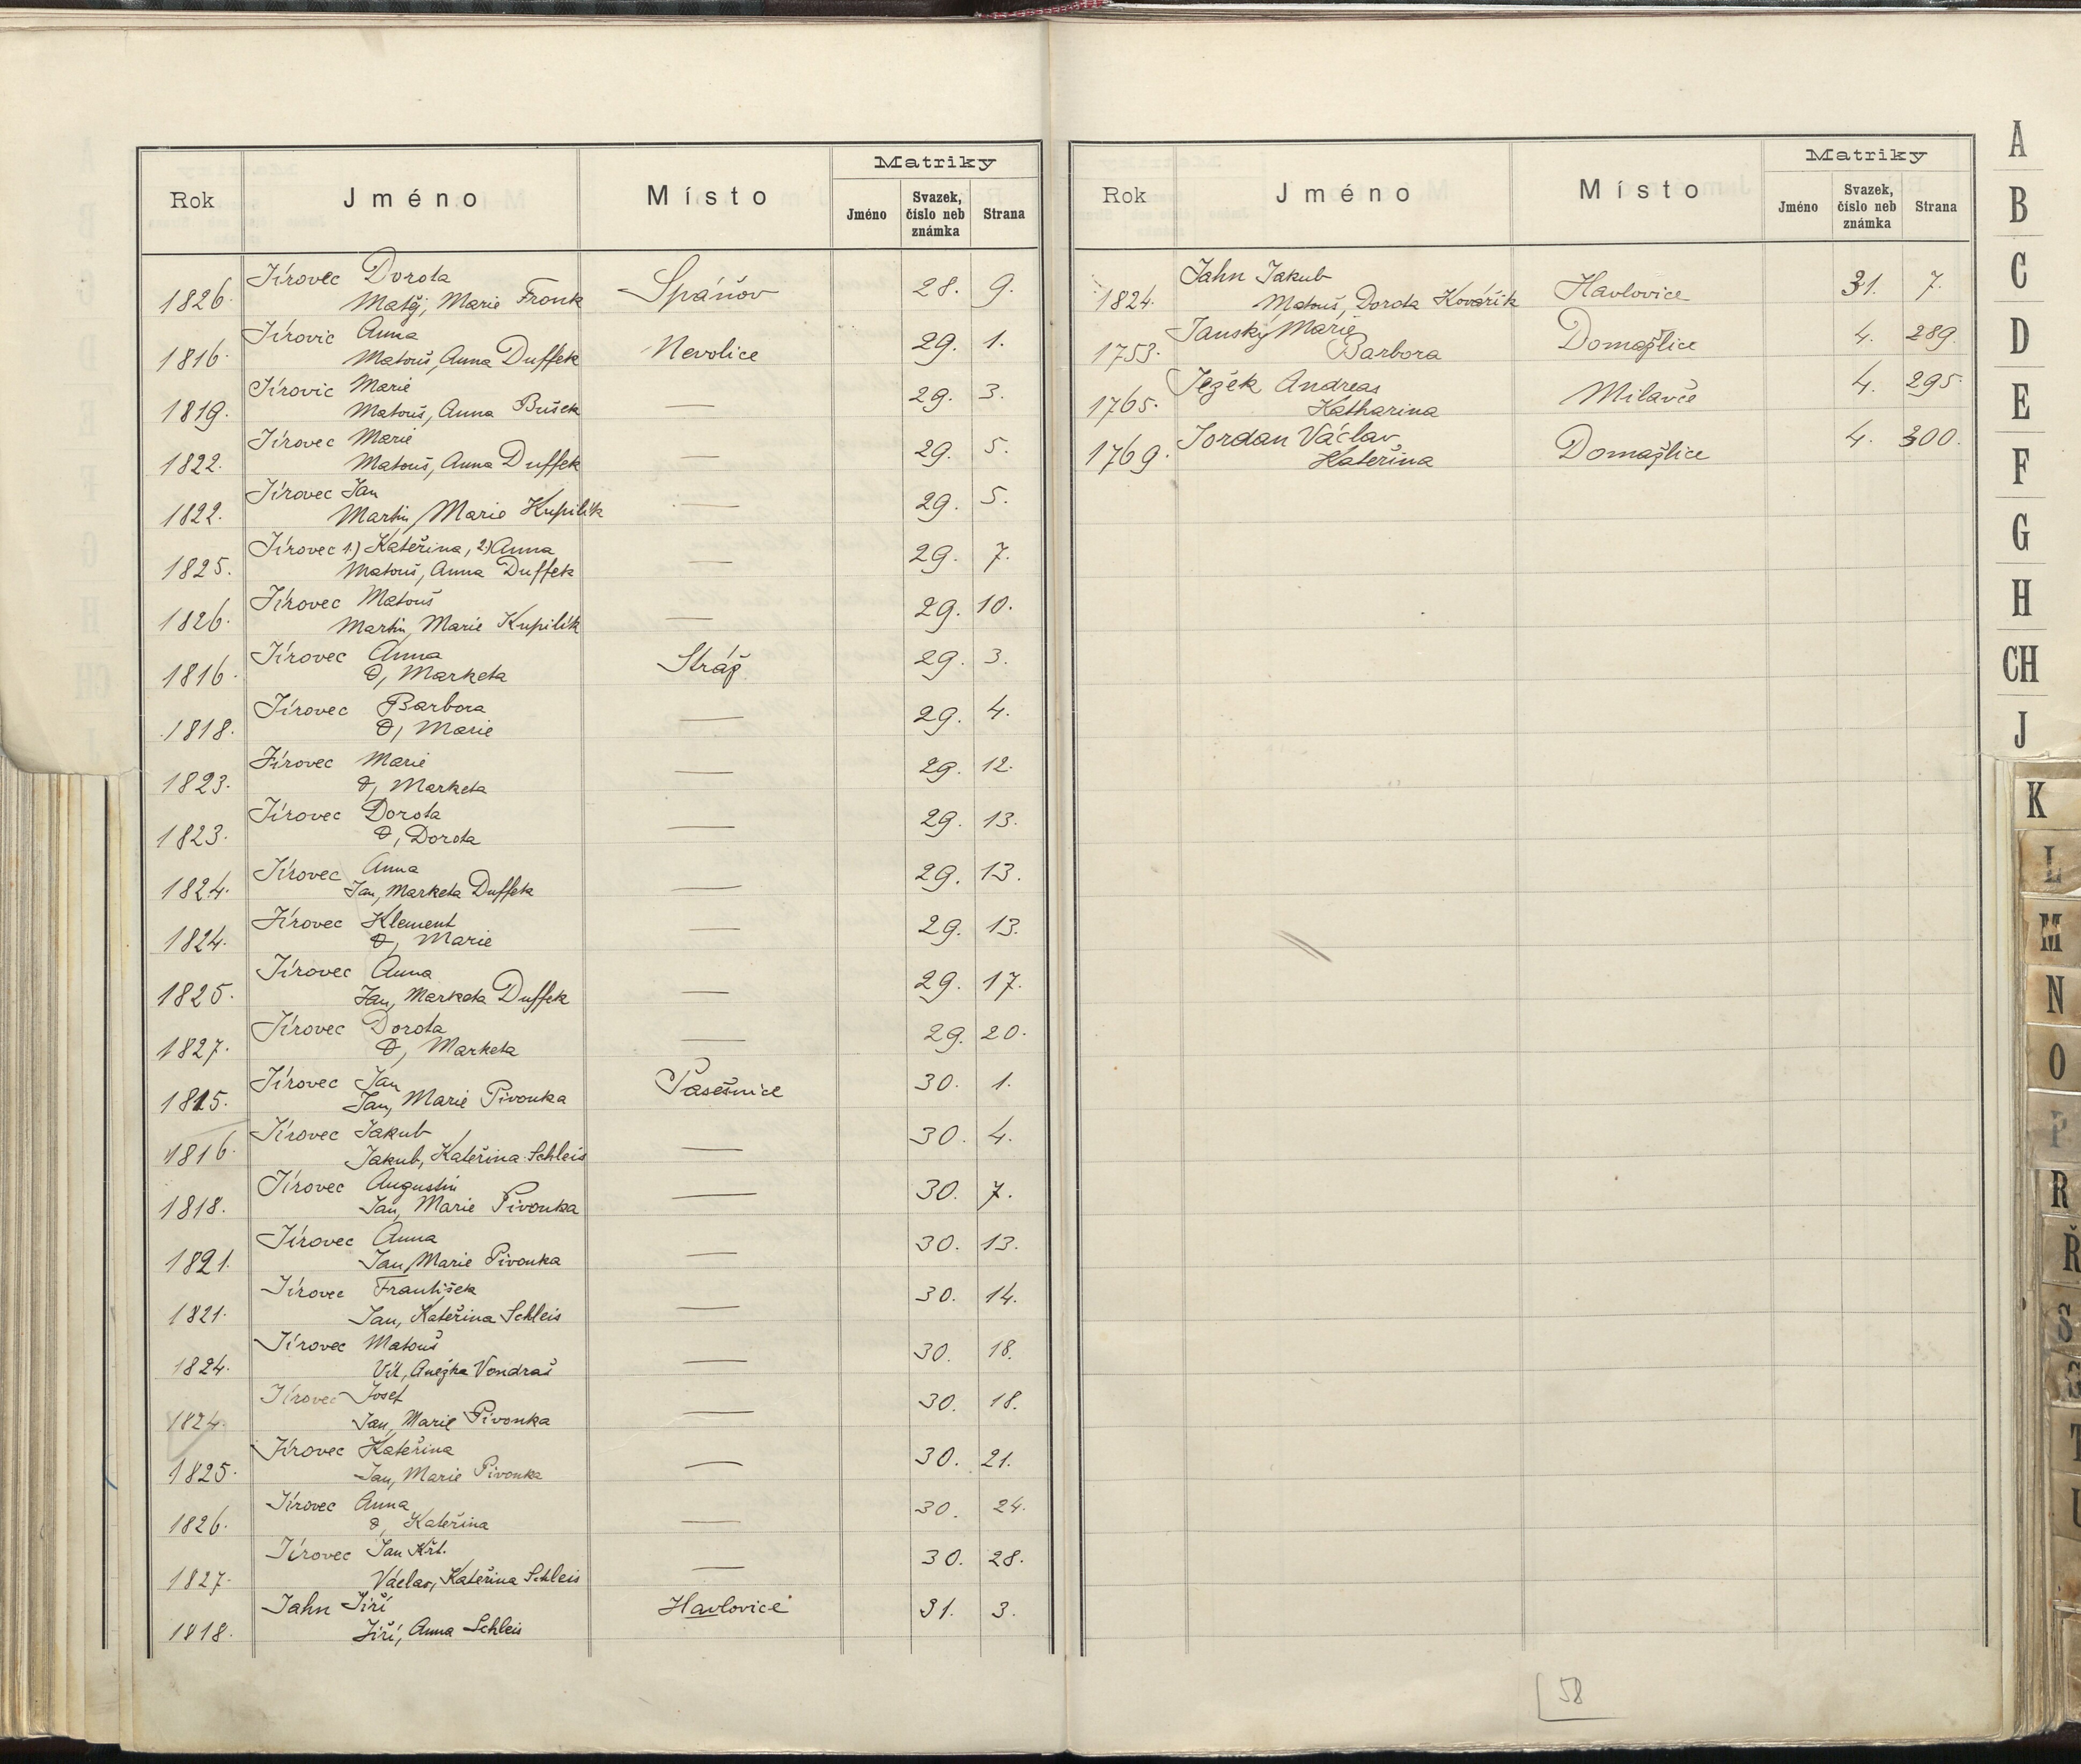 Matriky
Rok Jméno Místo Jméno Svazek, číslo neb známka Strana
Jírovec Dorota
1826. Matěj, Marie Fronk Spáňov 28. 9.
Jírovic Anna
1816. Matouš, Anna Duffek Nevolice 29. 1.
Jírovic Marie
1819. Matouš, Anna Bušek — 29. 3.
Jírovec Marie
1822. Matouš, Anna Duffek — 29. 5.
Jírovec Jan
1822. Martin, Marie Kupilík — 29. 5.
Jírovec 1.) Kateřina, 2.) Anna
1825. Matouš, Anna Duffek — 29. 7.
Jírovec Matouš
1826. Martin, Marie Kupilík — 29. 10.
Jírovec Anna
1816. O, Marketa Stráž 29. 3.
Jírovec Barbora
1818. O, Marie — 29. 4.
Jírovec Marie
1823. O, Marketa — 29. 12.
Jírovec Dorota
1823. O, Dorota — 29. 13.
Jírovec Anna
1824. Jan, Marketa Duffek — 29. 13.
Jírovec Klement
1824. O, Marie — 29. 13.
Jírovec Anna
1825. Jan, Marketa Duffek — 29. 17.
Jírovec Dorota
1827. O, Marketa — 29. 20.
Jírovec Jan
1815. Jan, Marie Pivonka Pasečnice 30. 1.
Jírovec Jakub
1816. Jakub, Kateřina Schleis — 30. 4.
Jírovec Augustin
1818. Jan, Marie Pivonka — 30. 7.
Jírovec Anna
1821. Jan, Marie Pivonka — 30. 13.
Jírovec František
1821. Jan, Kateřina Schleis — 30. 14.
Jírovec Matouš
1824. Vít, Anežka Vondraš — 30. 18.
Jírovec Josef
1824. Jan, Marie Pivonka — 30. 18.
Jírovec Kateřina
1825. Jan, Marie Pivonka — 30. 21.
Jírovec Anna
1826. O, Kateřina — 30. 24.
Jírovec Jan Křt.
1827. Václav, Kateřina Schleis — 30. 28.
Jahn Jiří
1818. Jiří, Anna Schleis Havlovice 31. 3.
Matriky
Rok Jméno Místo Jméno Svazek, číslo neb známka Strana
Jahn Jakub
1824. Matouš, Dorota Kovářík Havlovice 31. 7.
Janský Marie
1753. Barbora Domažlice 4. 289.
Ježek Andreas
1765. Katharina Milavče 4. 295.
Jordan Václav
1769. Kateřina Domažlice 4. 300.
58
A
B
C
D
E
F
G
H
CH
J
K
L
M
N
O
P
R
Ř
S
T
U